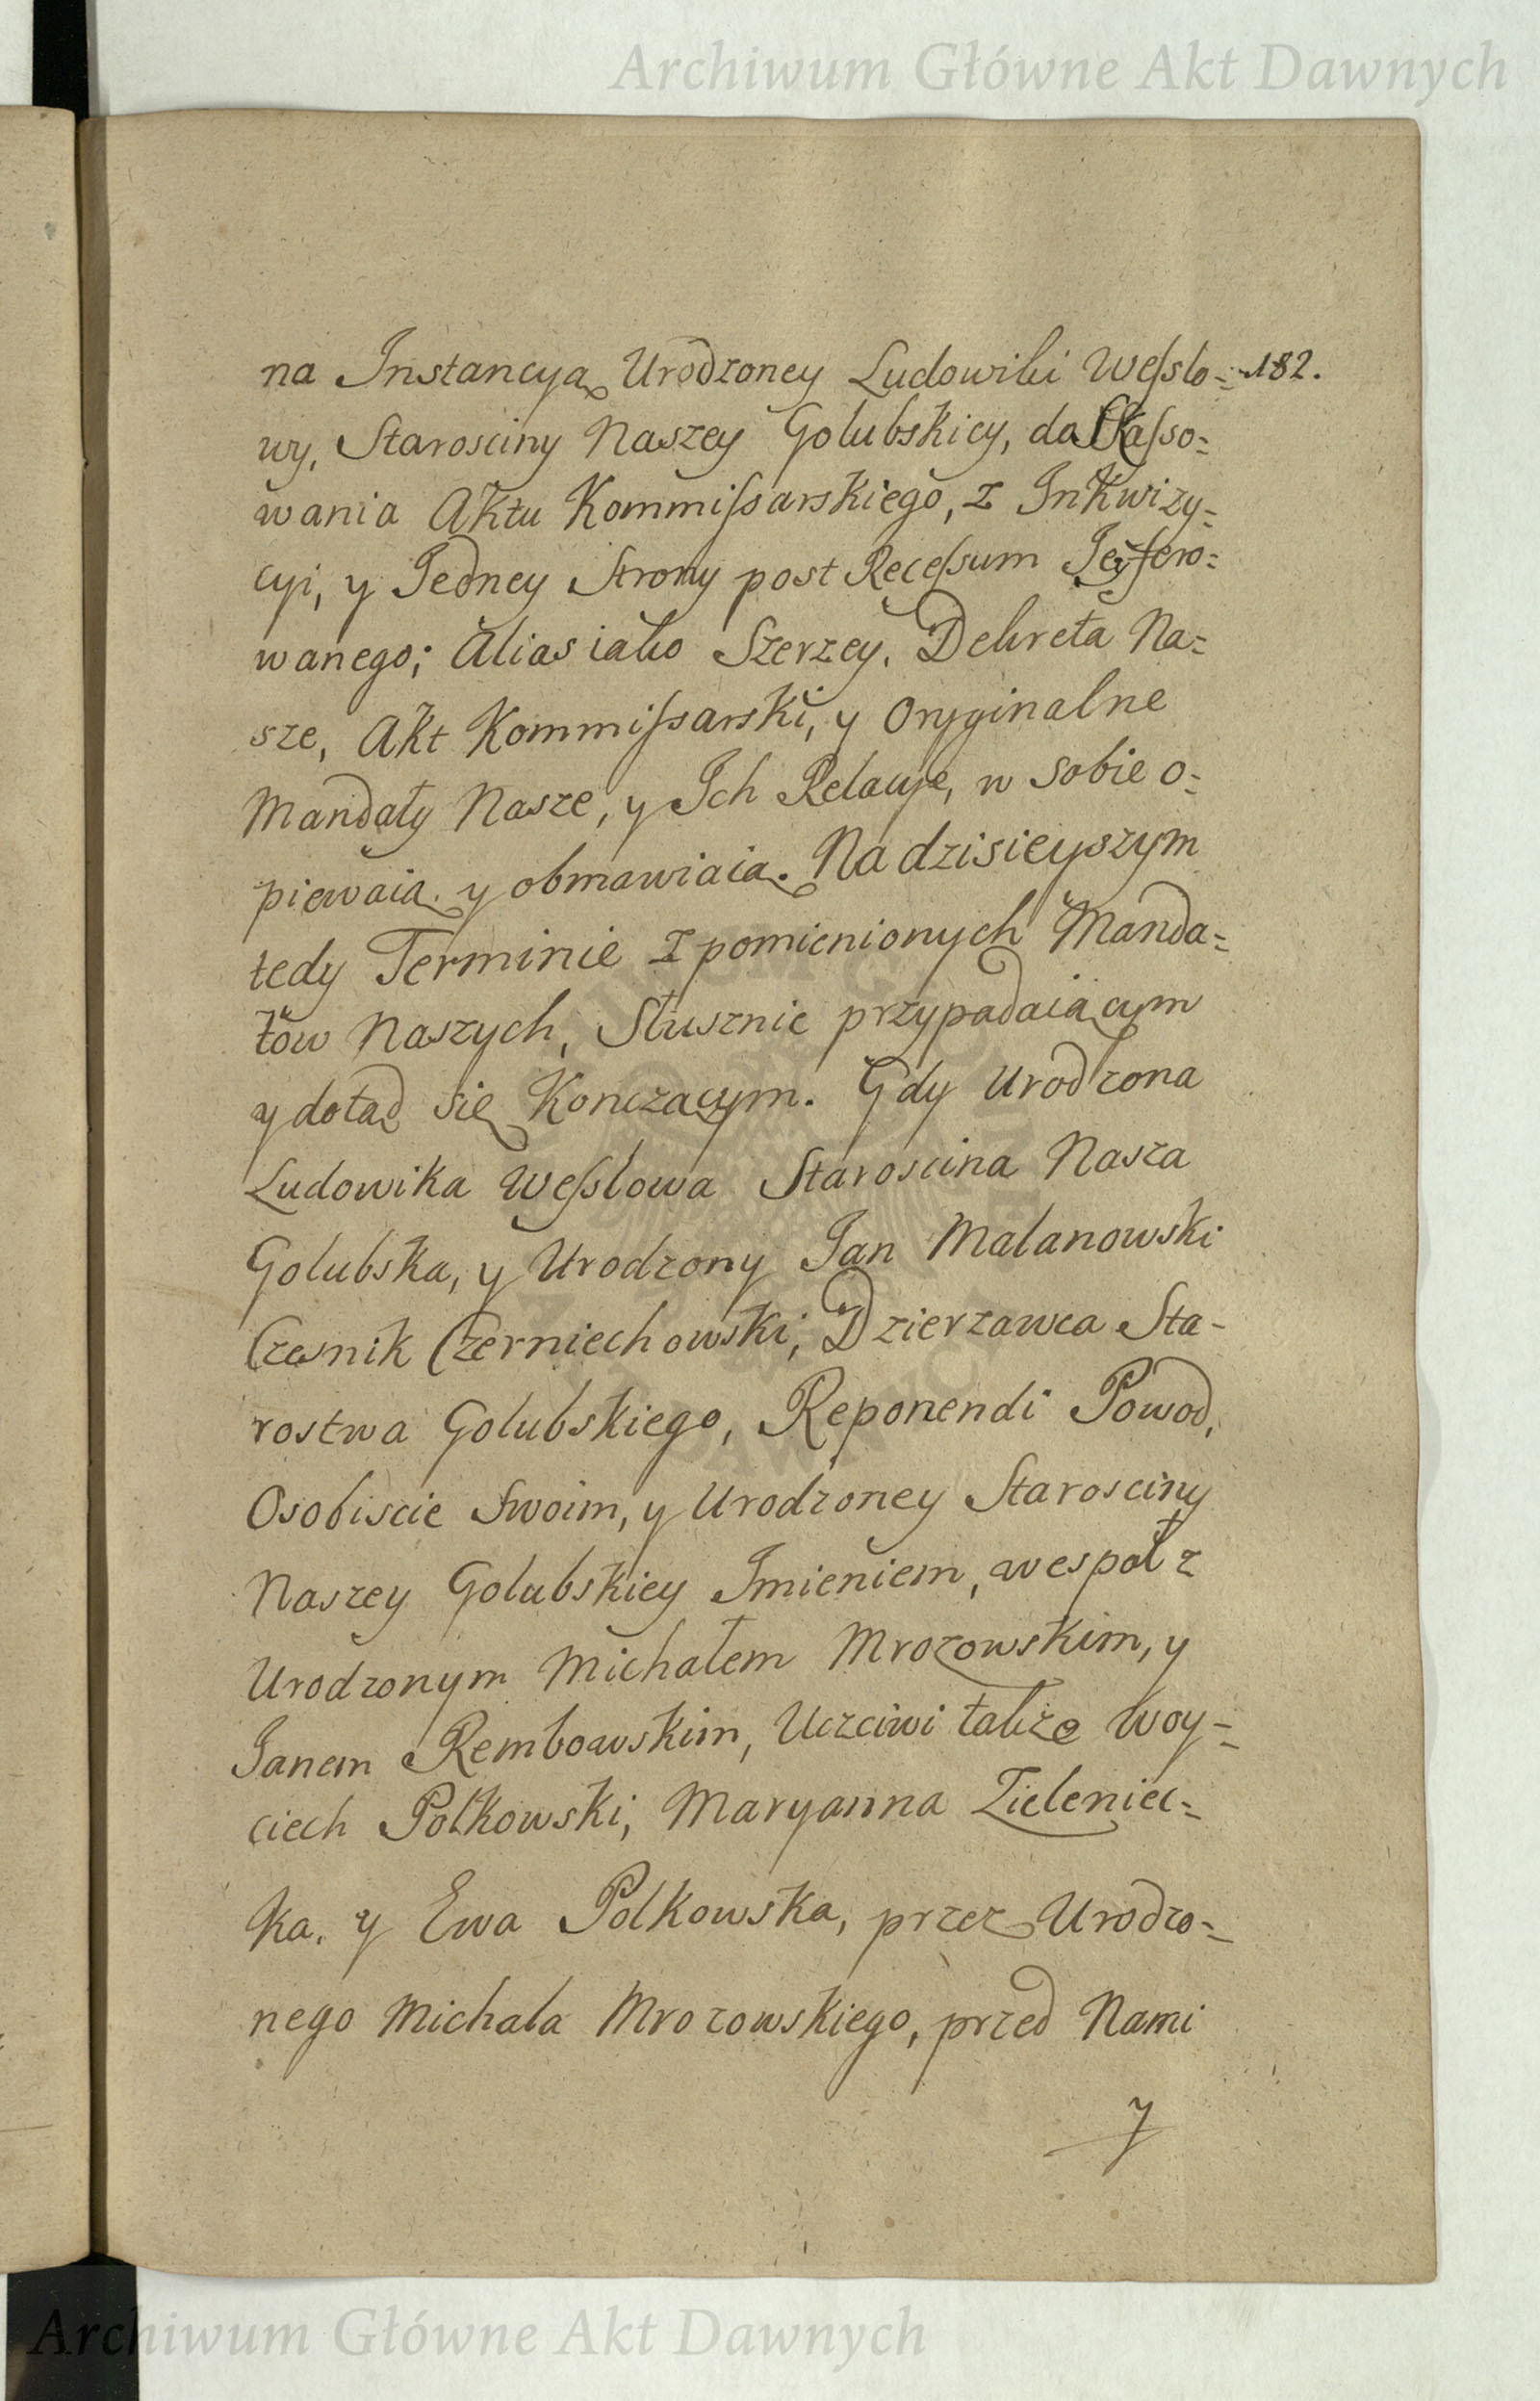 Archiwum Główne Akt Dawnych
na Instancyą Urodzoney Ludowiki Wesslo= 182.
wy, Starosciny Naszey Golubskiey, do Skasso=
wania Aktu Kommissarskiego, z Inkwizy=
cyi, y Jedney Strony post Recessum
wanego; Alias iako Szerzey. Dekreta Na=
sze, Akt Kommissarski, y Oryginalne
Mandaty Nasze, y Ich Relacye, w sobie o=
piewaią. y obmawiaią. Na dzisieyszym
tedy Terminie z pomienionych Manda=
tów Naszych, Słusznie przypadaiącym
y dotąd się Konczącym. Gdy Urodzona
Ludowika Wesslowa Staroscina Nasza
Golubska, y Urodzony Jan Malanowski
Czesnik Czerniechowski, Dzierzawca Sta-
rostwa Golubskiego, Reponendi Powod,
Osobiscie Swoim, y Urodzoney Starosciny
Naszey Golubskiey Imieniem, wespoł z
Urodzonym Michałem Mrozowskim, y
Janem Rembowskim, Uczciwi także Woy=
ciech Polkowski, Maryanna Zieleniec=
ka, y Ewa Polkowska, przez Urodzo=
nego Michała Mrozowskiego, przed Nami
y
Archiwum Główne Akt Dawnych